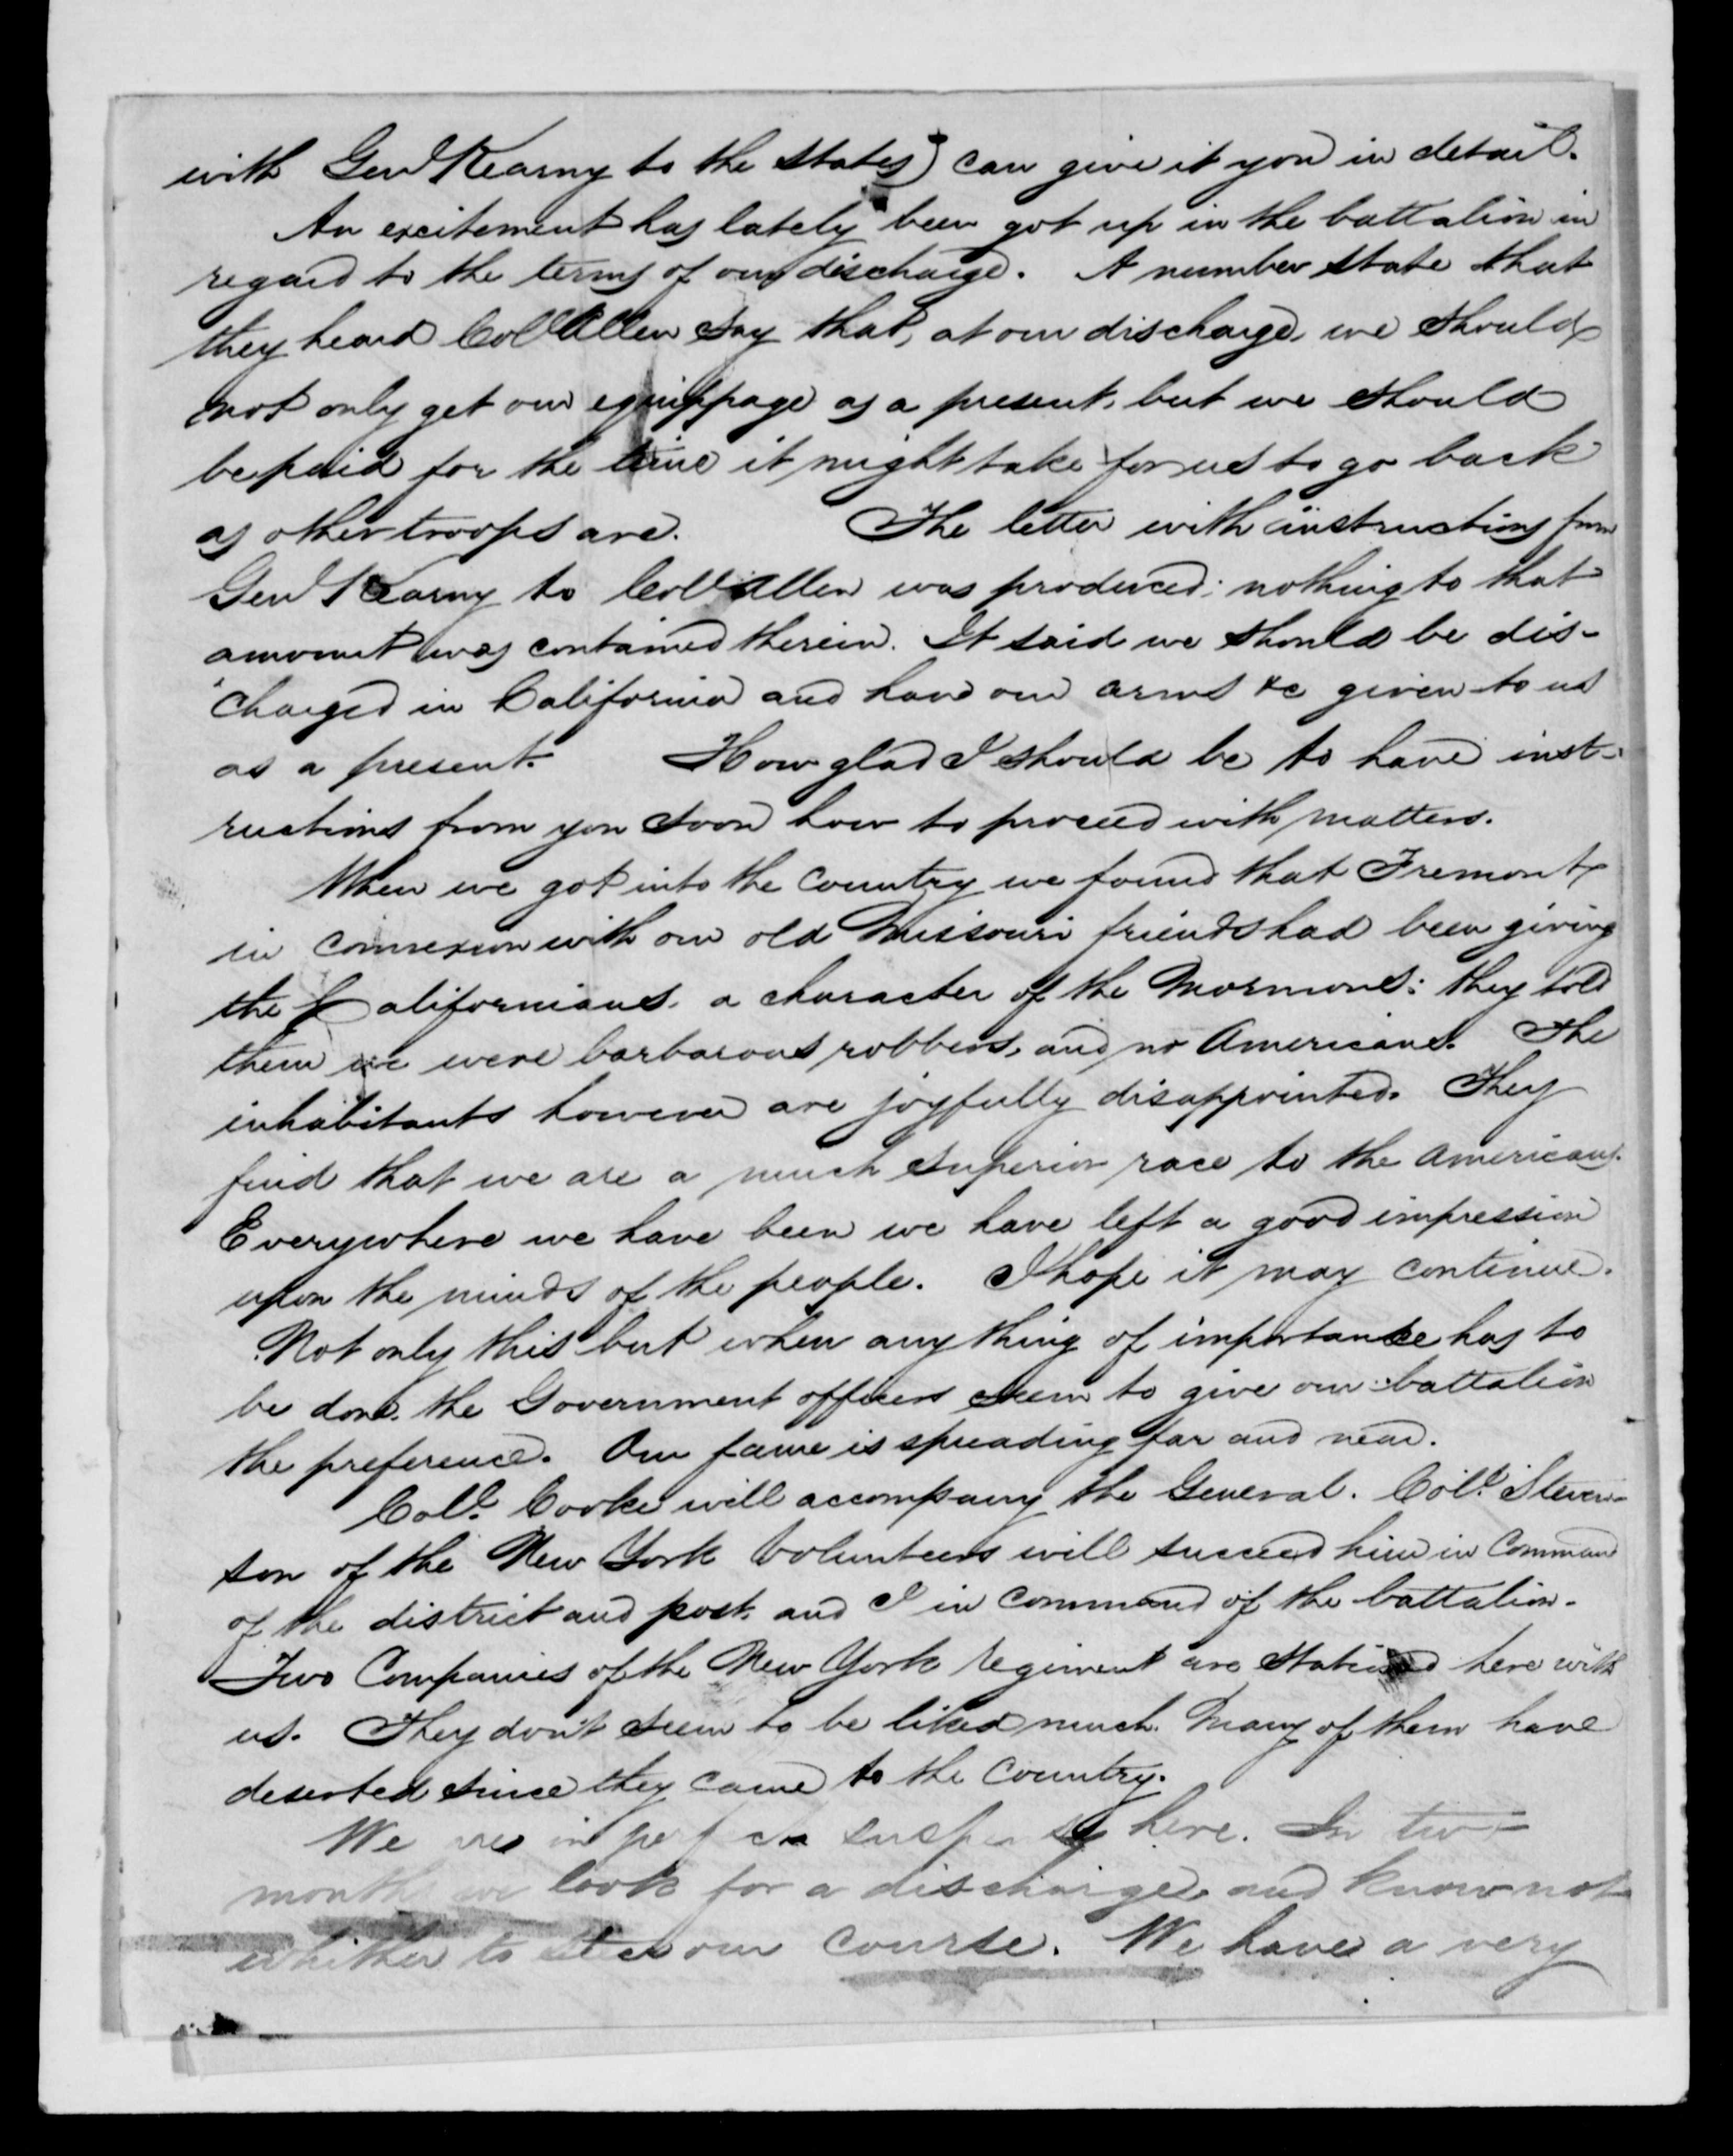 with Genl Kearny to the States) can give it you in detail.
An excitement has lately been got up in the battalion in
regard to the terms of our discharge. A number state that
they heard Coll Allen say that, at our discharge, we should
not only get our equippage as a present, but we should
be paid for the time it might take for us to go back
as other troops are. The letter with instructions from
Genl Kearny to Coll Allen was produced; nothing to that
amount was contained therein. It said we should be dis-
charged in California and have our arms &c given to us
as a present. How glad I should be to have inst-
ructions from you soon how to proceed with matters.
When we got into the Country we found that Fremont
in connexion with our old Missouri friends had been giving
the Californians a character of the Mormons: they told
them we were barbarous robbers, and no Americans. The
inhabitants however are joyfully disappointed. They
find that we are a much superior race to the Americans.
Everywhere we have been we have left a good impression
upon the minds of the people. I hope it may continue.
Not only this but when any thing of importance has to
be done, the Government officers seem to give our battalion
the preference. Our fame is spreading far and near.
Coll. Cooke will accompany the General. Coll. Steven-
son of the New York Volunteers will succeed him in Command
of the district and post, and I in command of the battalion.
Two Companies of the New York regiment are stationed here with
us. They don't seem to be liked much. Many of them have
deserted since they came to the Country.
We are in perfect suspense here. In two
months we look for a discharge and know not
whither to steer our course. We have a very